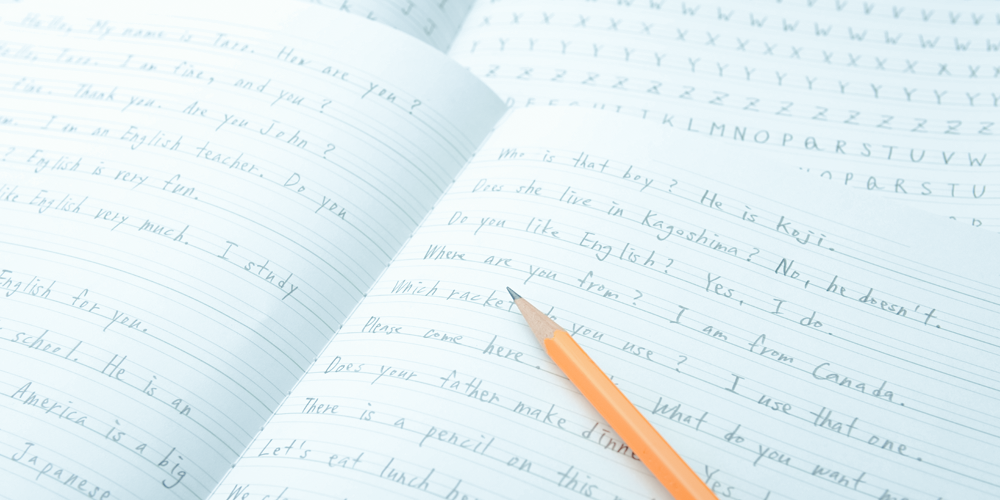 Hello. My name is Taro. How are you?
Hello, Taro. I am fine, and you?
fine. Thank you. Are you John?
I am an English teacher. Do you
? English is very fun.
like English very much. I study
English for you.
school. He is an
America is a big
Japanese
Who is that boy? He is Koji.
Does she live in Kagoshima? No, he doesn't.
Do you like English? Yes, I do.
Where are you from? I am from Canada.
Which racket do you use? I use that one.
Please come here. What do you want
Does your father make dinne Yes
There is a pencil on this
Let's eat lunch he
We
V V V V V V
W W W W W W W W W
X X X X X X X X X X X
Y Y Y Y Y Y Y Y Y Y Y
Z Z Z Z Z Z Z Z Z Z Z
K L M N O P Q R S T U V W
O P Q R S T U